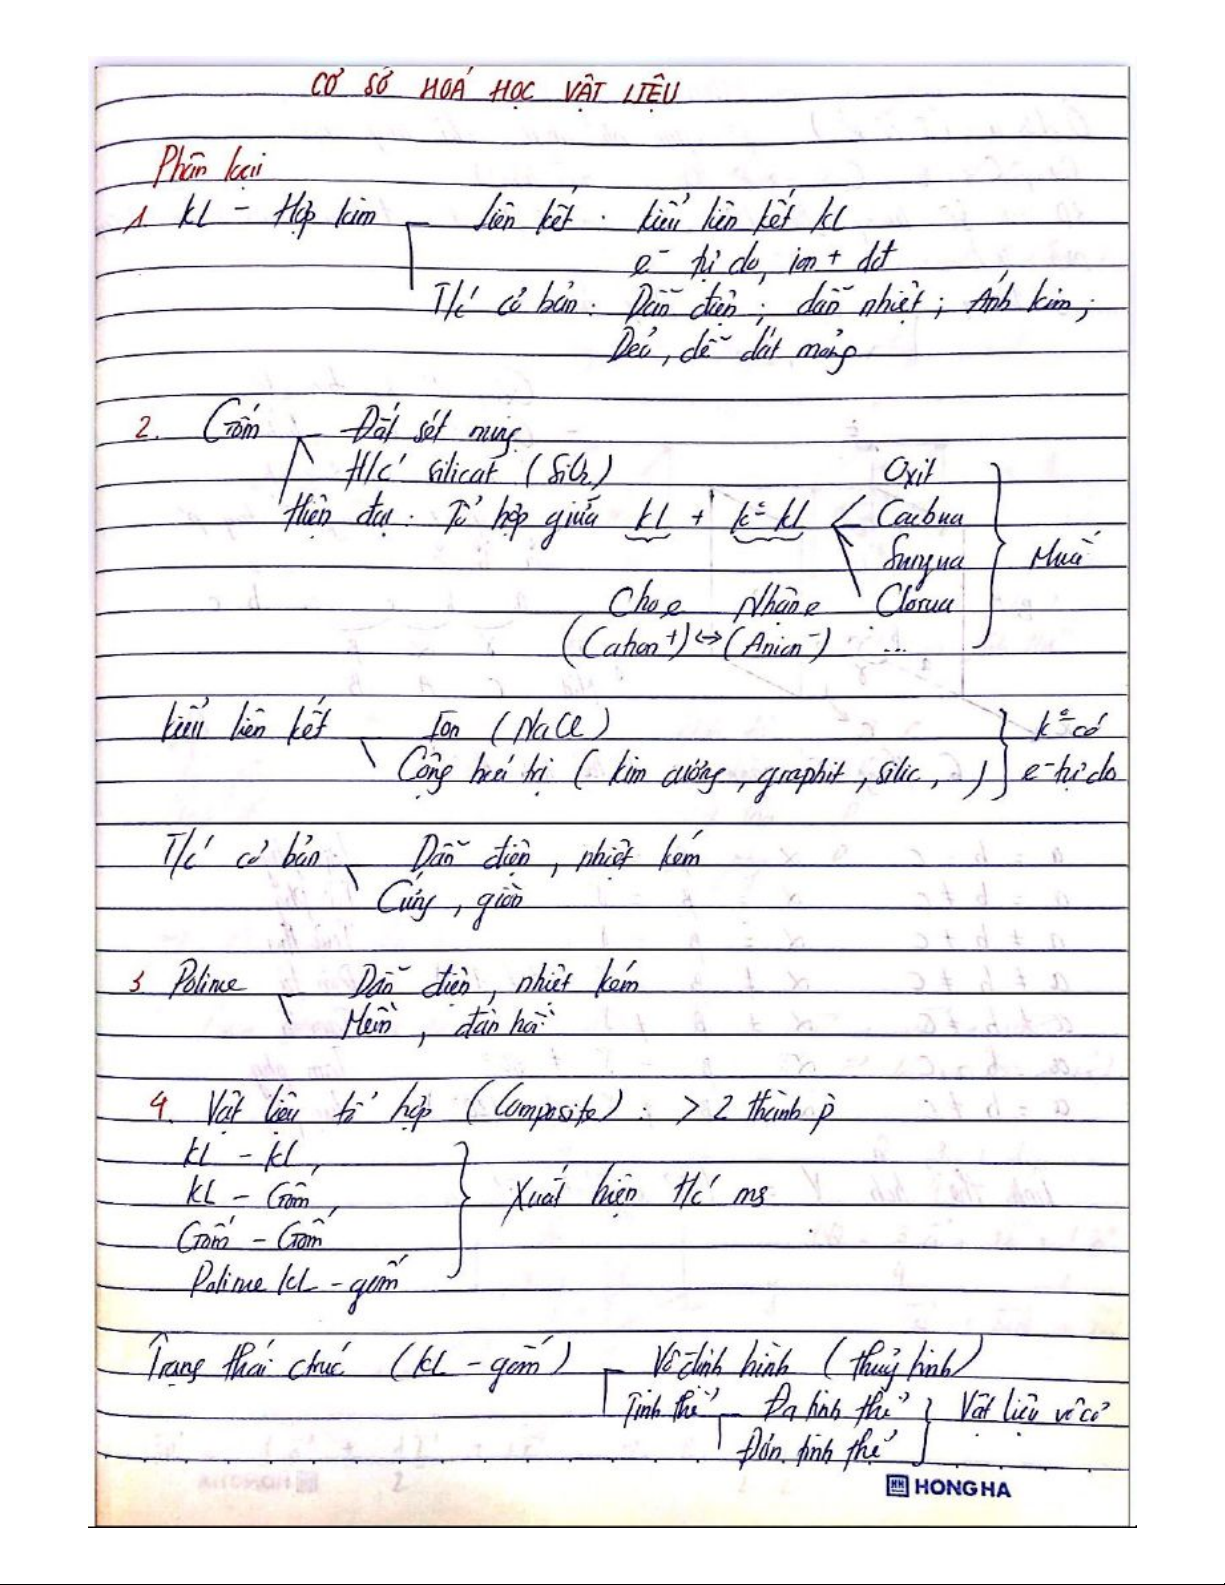 CƠ SỞ HOÁ HỌC VẬT LIỆU
Phân loại
1. KL - Hợp kim - Liên kết : kiểu liên kết kl
e⁻ tự do, ion + dct
T/c cơ bản : Dẫn điện ; dẫn nhiệt ; Ánh kim ;
Dẻo, dễ dát mỏng
2. Gốm - Đất sét nung
H/c silicat (SiO₂)
Oxit
Hiện đại : Tổ hợp giữa kl + k° kl < Cacbua
Sunfua } Muối
Cho e Nhận e Clorua
(Cation⁺) ↔ (Anion⁻) ...
Kiểu liên kết - Ion (NaCl) } k° có
Cộng hoá trị (kim cương, graphit, silic, ..) } e⁻ tự do
T/c cơ bản - Dẫn điện, nhiệt kém
Cứng, giòn
3 Polime - Dẫn điện, nhiệt kém
Mềm, đàn hồi
4. Vật liệu tổ hợp (Composite) : > 2 thành p
KL - KL,
KL - Gốm, } Xuất hiện t/c ms
Gốm - Gốm
Polime KL - gốm
Trạng thái (KL - gốm) - Vô định hình (thuỷ tinh)
Tinh thể - Đa tinh thể } Vật liệu vô cơ
Đơn tinh thể
HONG HA